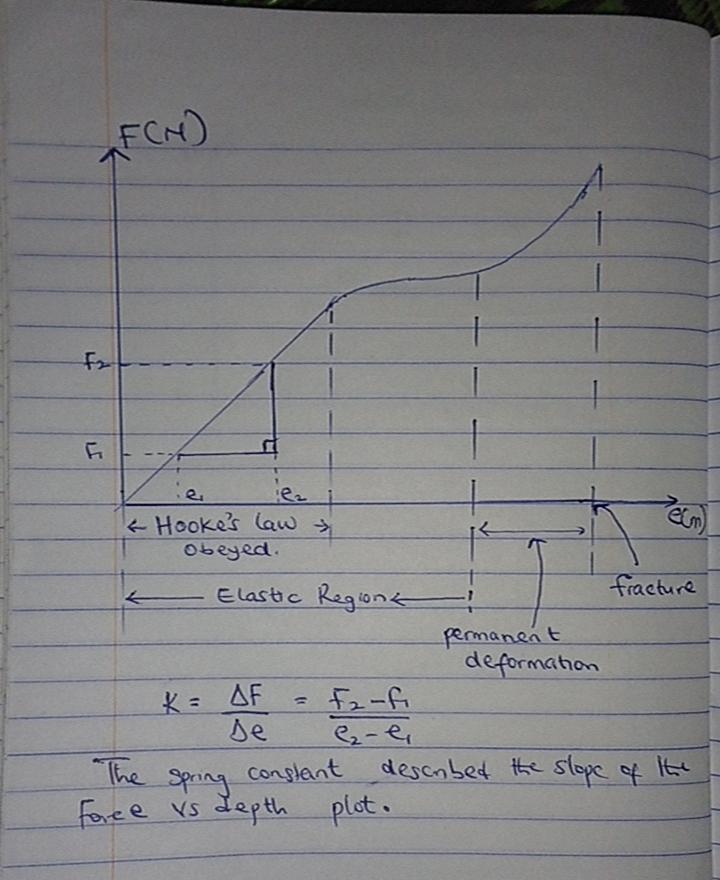 F(N)
F₂
F₁
e₁
e₂
e(m)
← Hooke's law →
obeyed.
fracture
← Elastic Region ←
permanent
deformation
K = ΔF/Δe = F₂-F₁/e₂-e₁
The spring constant described the slope of the
force vs depth plot.